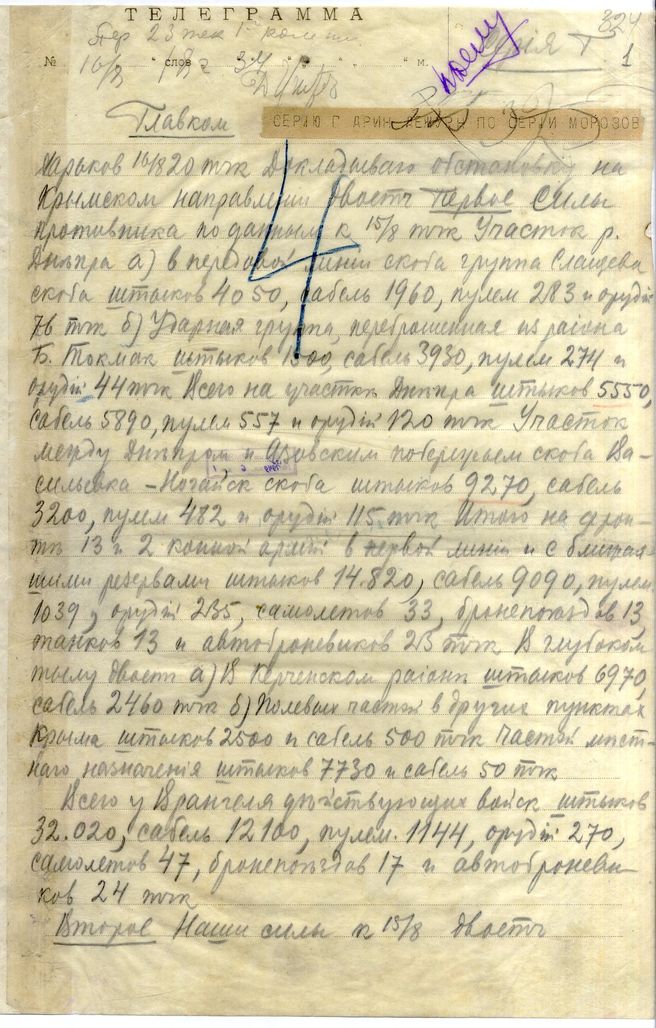 ТЕЛЕГРАММА
324
Серія Г
1
№ 16/8 слов " " " м.
Главком
СЕРИЮ Г ПО СЕРИИ МОРОЗОВ
4
Харьков 16/820 тчк Докладываю обстановку на
Крымском направлении двоетч Первое Силы
противника по данным к 15/8 тчк Участок р.
Днѣпра а) в передовой линии скоба группа Слащева
скоба штыков 4050, сабель 1960, пулем 283 и орудій
76 тчк б) Ударная группа, переброшенная из раіона
Б. Токмак штыков 1500, сабель 3930, пулем 274 и
орудій 44 тчк Всего на участкѣ Днѣпра штыков 5550,
сабель 5890, пулем 557 и орудій 120 тчк Участок
между Днѣпром и Азовским побережьем скоба Ва-
сильевка - Ногайск скоба штыков 9270, сабель
3200, пулем 482 и орудій 115 тчк Итого на фрон-
тѣ 13 и 2 конной армій в первой линіи и с ближай-
шими резервами штыков 14.820, сабель 9090, пулем.
1039, орудій 235, самолетов 33, бронепоѣздов 13,
танков 13 и автоброневиков 23 тчк В глубоком
тылу двоетч а) В Керченском раіонѣ штыков 6970,
сабель 2460 тчк б) Полевых частей в других пунктах
Крыма штыков 2500 и сабель 500 тчк частей мѣст-
наго назначенія штыков 7730 и сабель 50 тчк
Всего у Врангеля дѣйствующих войск штыков
32.020, сабель 12100, пулем. 1144, орудій 270,
самолетов 47, бронепоѣздов 17 и автоброневи-
ков 24 тчк
Второе Наши силы к 15/8 двоетч